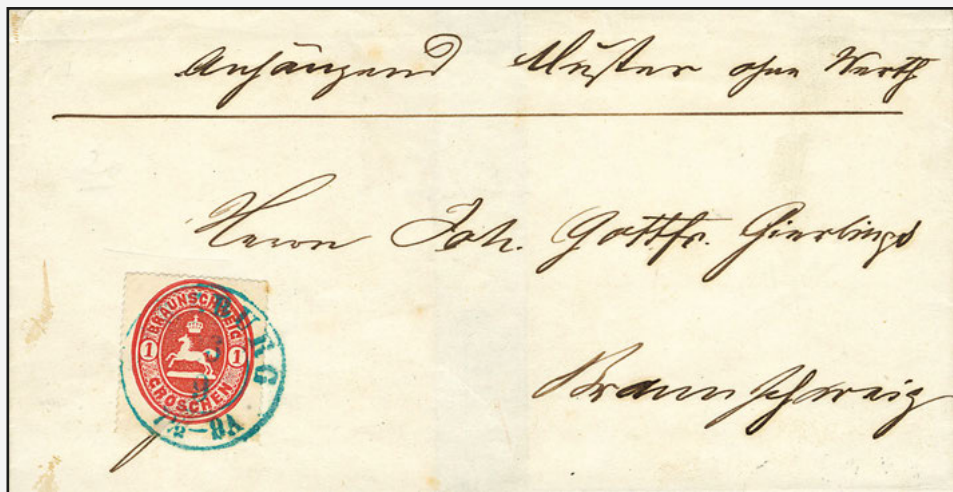 Anhängend Muster ohne Werth
Herrn Joh. Gottfr. Gierlings
Braunschweig
BRAUNSCHWEIG
1 1
GROSCHEN
BURG
3
9
7½-8A